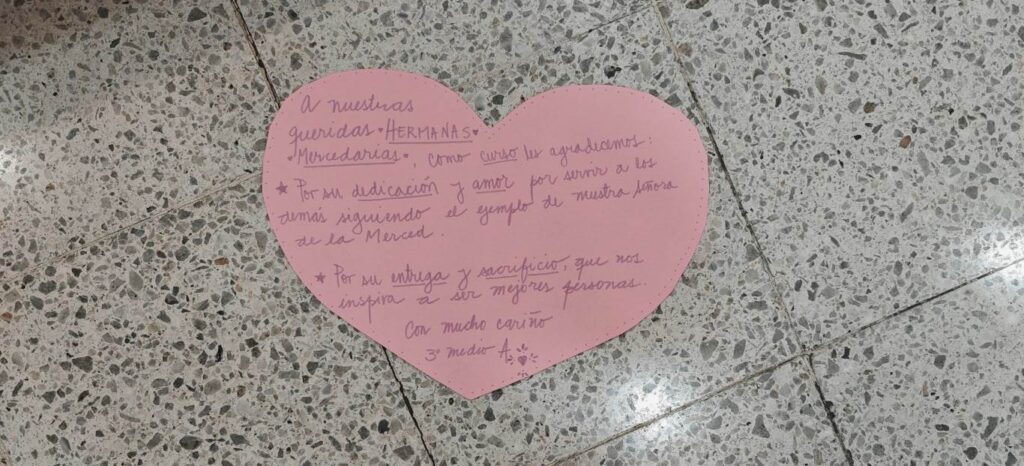 A nuestras
queridas ♥ HERMANAS ♥
♥ Mercedarias ♥, como curso les agradecemos:
★ Por su dedicación y amor por servir a los
demás siguiendo el ejemplo de nuestra Señora
de la Merced.
★ Por su entrega y sacrificio, que nos
inspira a ser mejores personas.
Con mucho cariño
3° medio A